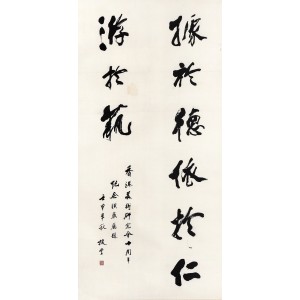 據於德依於仁
游於藝
香港美術研究會十周年
紀念
壬申年秋